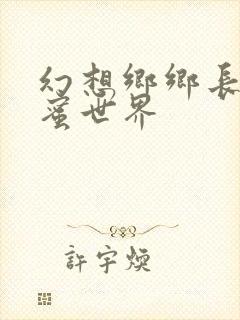 幻想鄉鄉長
蜜世界
許宇煐